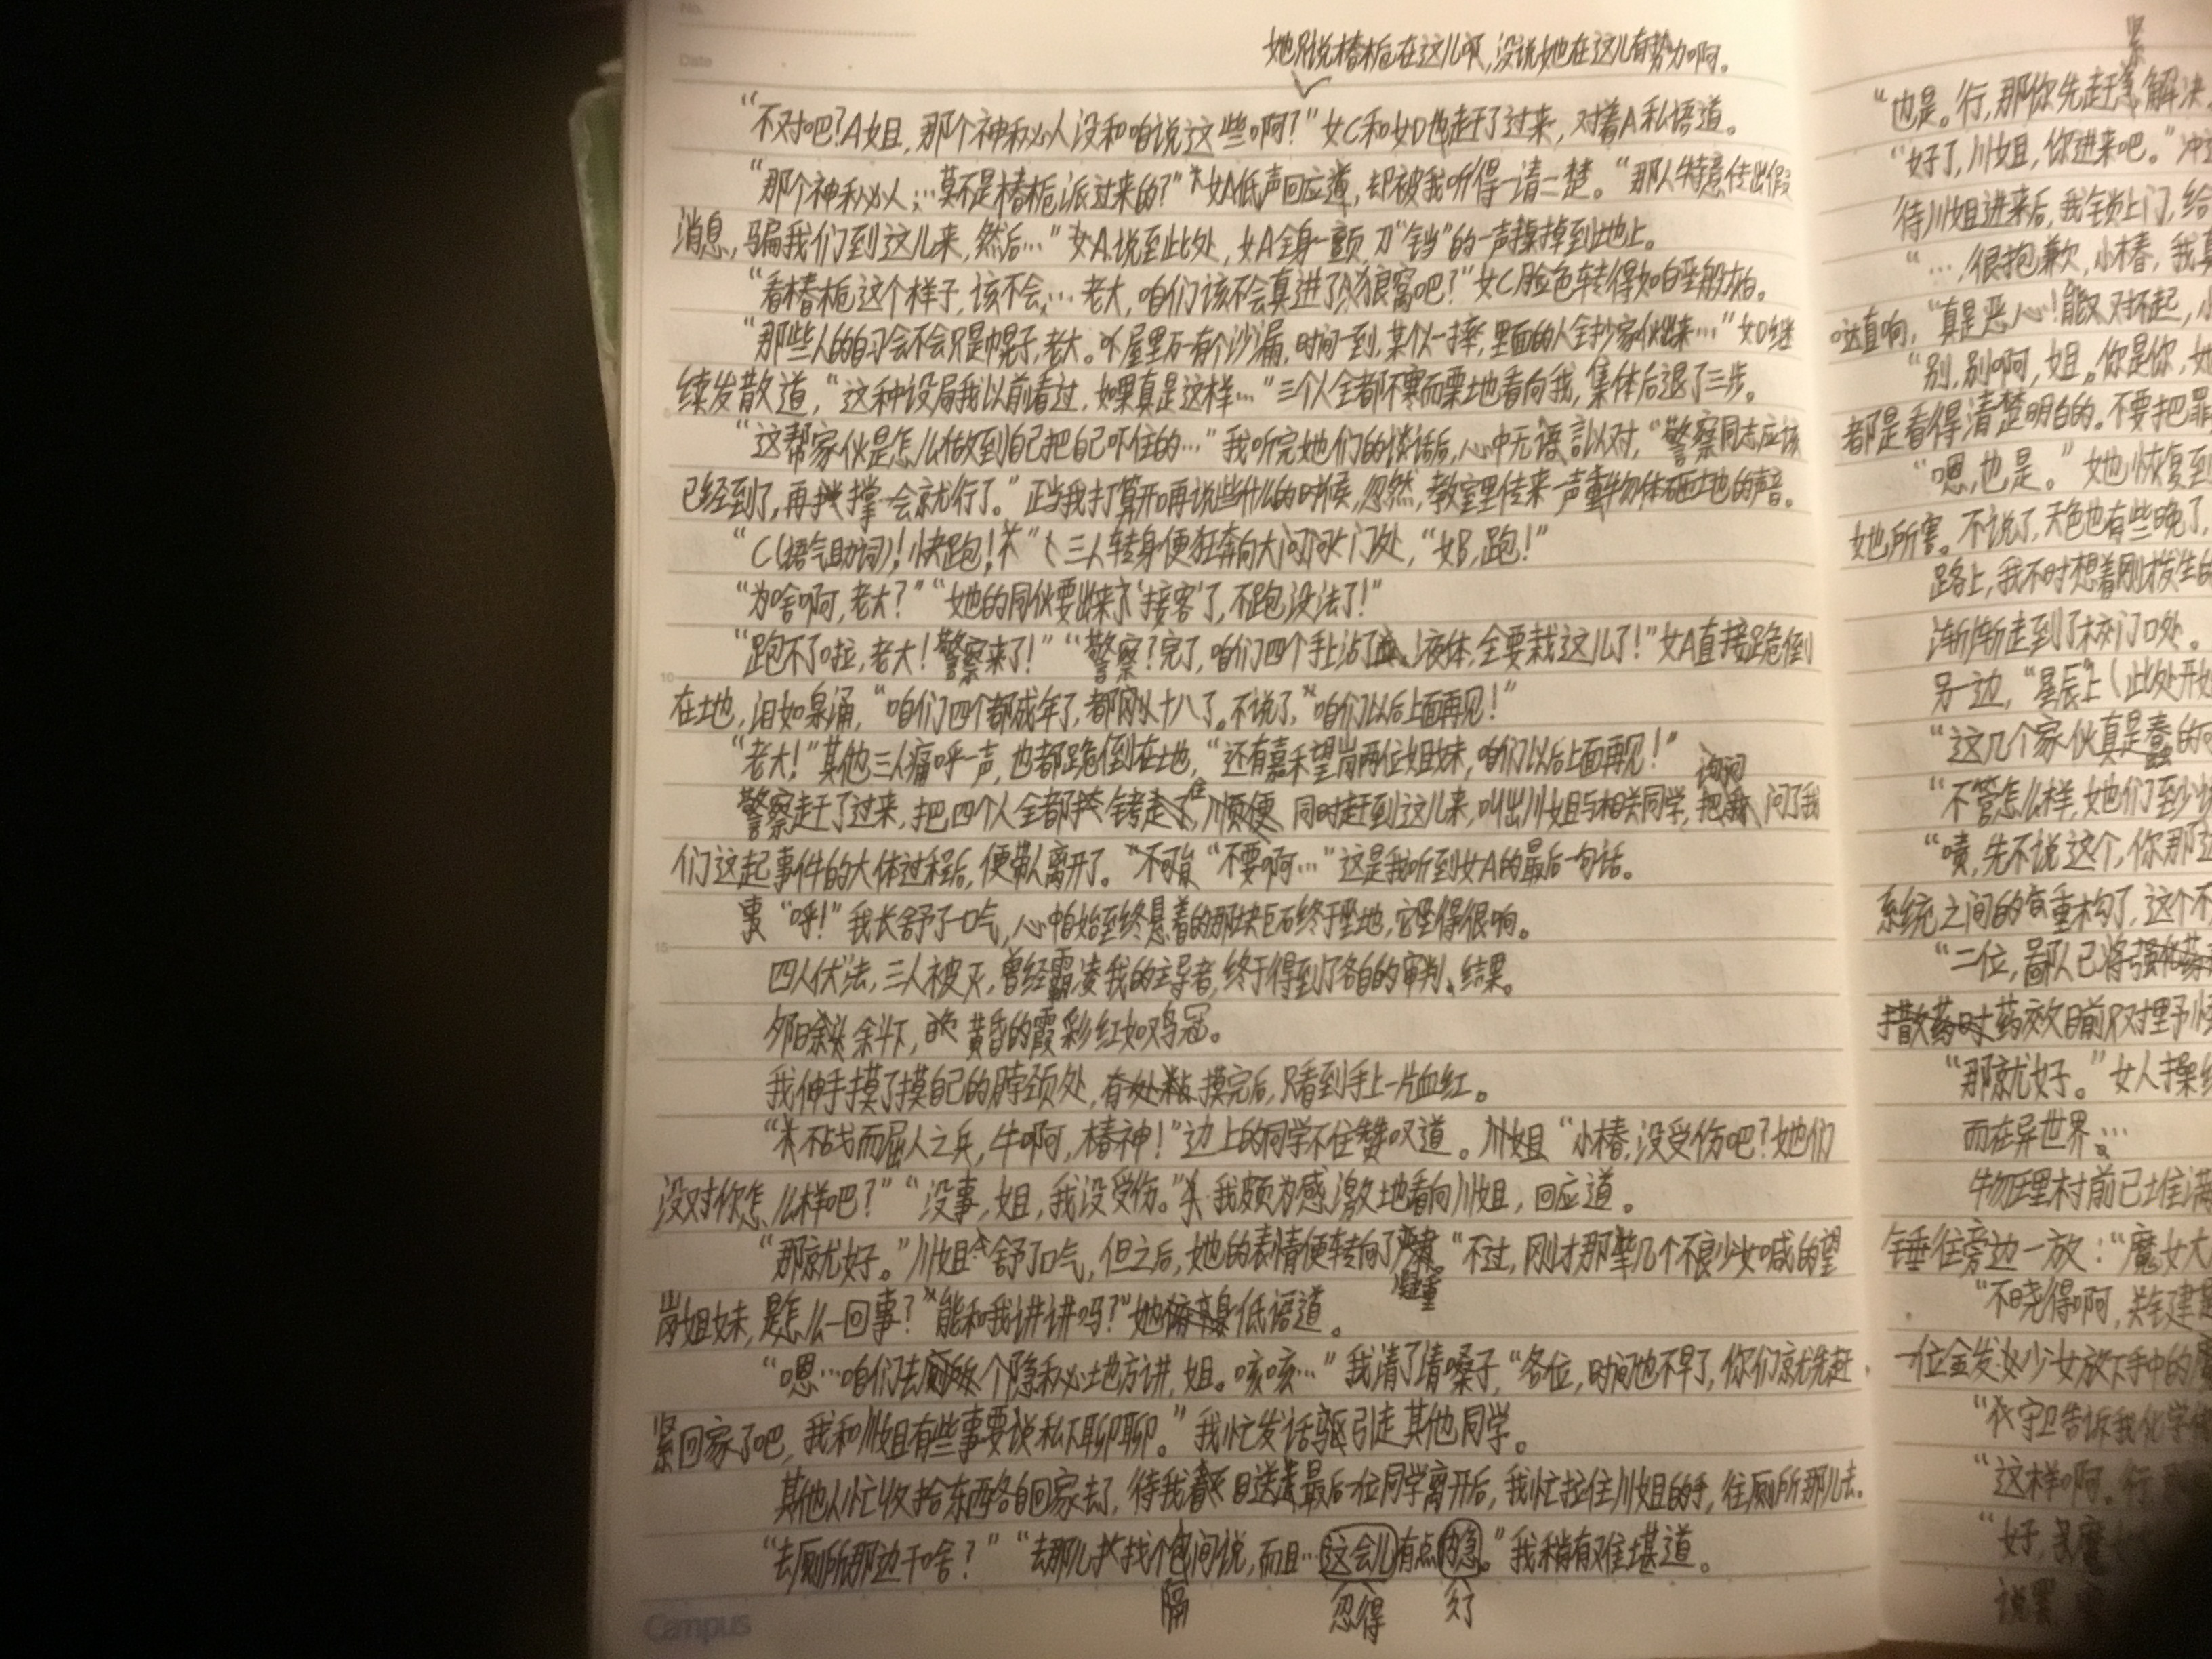 No.
Date
她只说椿栀在这儿啊,没说她在这儿有势力啊。
“不对吧?A姐,那个神秘人没和咱说这些啊?”女C和女D也赶了过来,对着A私语道。
“那个神秘人…莫不是椿栀派过来的?”女A低声回应道,却被我听得一清二楚。“那人特意传出假
消息,骗我们到这儿来,然后…”女A说至此处,女A全身一颤,刀“铛”的一声掉到地上。
“看椿栀这个样子,该不会…老大,咱们该不会真进了狼窝吧?”女C脸色转得如白垩般
“那些人的自习会不会只是幌子,老大。屋里万一有个沙漏,时间一到,某个一摔,里面的人全抄家伙出来…”女D继
续发散道,“这种设局我以前看过,如果真是这样…”三个人全都不寒而栗地看向我,集体后退了三步。
“这帮家伙是怎么做到自己把自己吓住的…”我听完她们的谈话后,心中无语以对,“警察同志应该
已经到了,再撑一会就行了。”正当我打算开口再说些什么的时候,忽然,教室里传来一声重物体砸地的声音。
“C(语气助词)!快跑!”三人转身便狂奔向大门处,“女B,跑!”
“为啥啊,老大?”“她的同伙要出来‘接客’了,不跑没法了!”
“跑不了啦,老大!警察来了!”“警察?完了,咱们四个手上沾了液体,全要栽这儿了!”女A直接跪倒
在地,泪如泉涌,“咱们四个都成年了,都刚从十八了。不说了,咱们以后上面再见!”
“老大!”其他三人痛呼一声,也都跪倒在地,“还有嘉禾望岗两位姐妹,咱们以后上面再见!”
警察赶了过来,把四个人全都铐住,同时赶到这儿来,叫出川姐与相关同学,询问问了我
们这起事件的大体过程后,便带人离开了。“不要啊…”这是我听到女A的最后一句话。
“呼!”我长舒了一口气,心中自始至终悬着的那块巨石终于坠地,它坠得很响。
四人伏法,三人被灭,曾经霸凌我的主导者,终于得到了各自的审判、结果。
夕阳余斜下,黄昏的霞彩红如鸡冠。
我伸手摸了摸自己的脖颈处,摸完后,只看到手上一片血红。
“不战而屈人之兵,牛啊,椿神!”边上的同学不住赞叹道。川姐“小椿,没受伤吧?她们
没对你怎么样吧?”“没事,姐,我没受伤。”我颇为感激地看向川姐,回应道。
“那就好。”川姐舒了口气,但之后,她的表情便转向了凝重。“不过,刚才那几个不良少女喊的望
岗姐妹,是怎么一回事?能和我讲讲吗?”她低语道。
“嗯…咱们去个隐秘地方讲,姐。咳咳…”我清了清嗓子,“各位,时间也不早了,你们就先赶
紧回家了吧,我和川姐有些事要私下聊聊。”我忙发话驱引走其他同学。
其他人忙收拾东西各自回家去了,待我目送最后一位同学离开后,我忙拉住川姐的手,往厕所那儿去。
“去厕所那边干啥?”“去那儿找个隔间说,而且…这会儿有点内急。”我稍有难堪道。
忍得 久了
Campus
紧
“也是。行,那你先赶急解决
“好了,川姐,你进来吧。”冲
待川姐进来后,我锁上门,给
“…很抱歉,小椿,我真
哒直响,“真是恶心!对不起,小
“别,别啊,姐。你是你,她
都是看得清楚明白的。不要把罪
“嗯,也是。”她恢复到
她所害。不说了,天色也有些晚了,
路上,我不时想着刚才发生的
渐渐走到了校门口处。
另一边,“星辰上(此处开始
“这几个家伙真是蠢的
“不管怎么样,她们至少
“啧,先不说这个,你那边
系统之间的重构了,这个不
“二位,部队已将
药效目前只对野
“那就好。”女人操纵
而在异世界…
物理村前已堆满
锤往旁边一放:“魔女大
“不晓得啊,关全建
一位金发少女放下手中的
“守卫告诉我化学
“这样啊。行
“好,